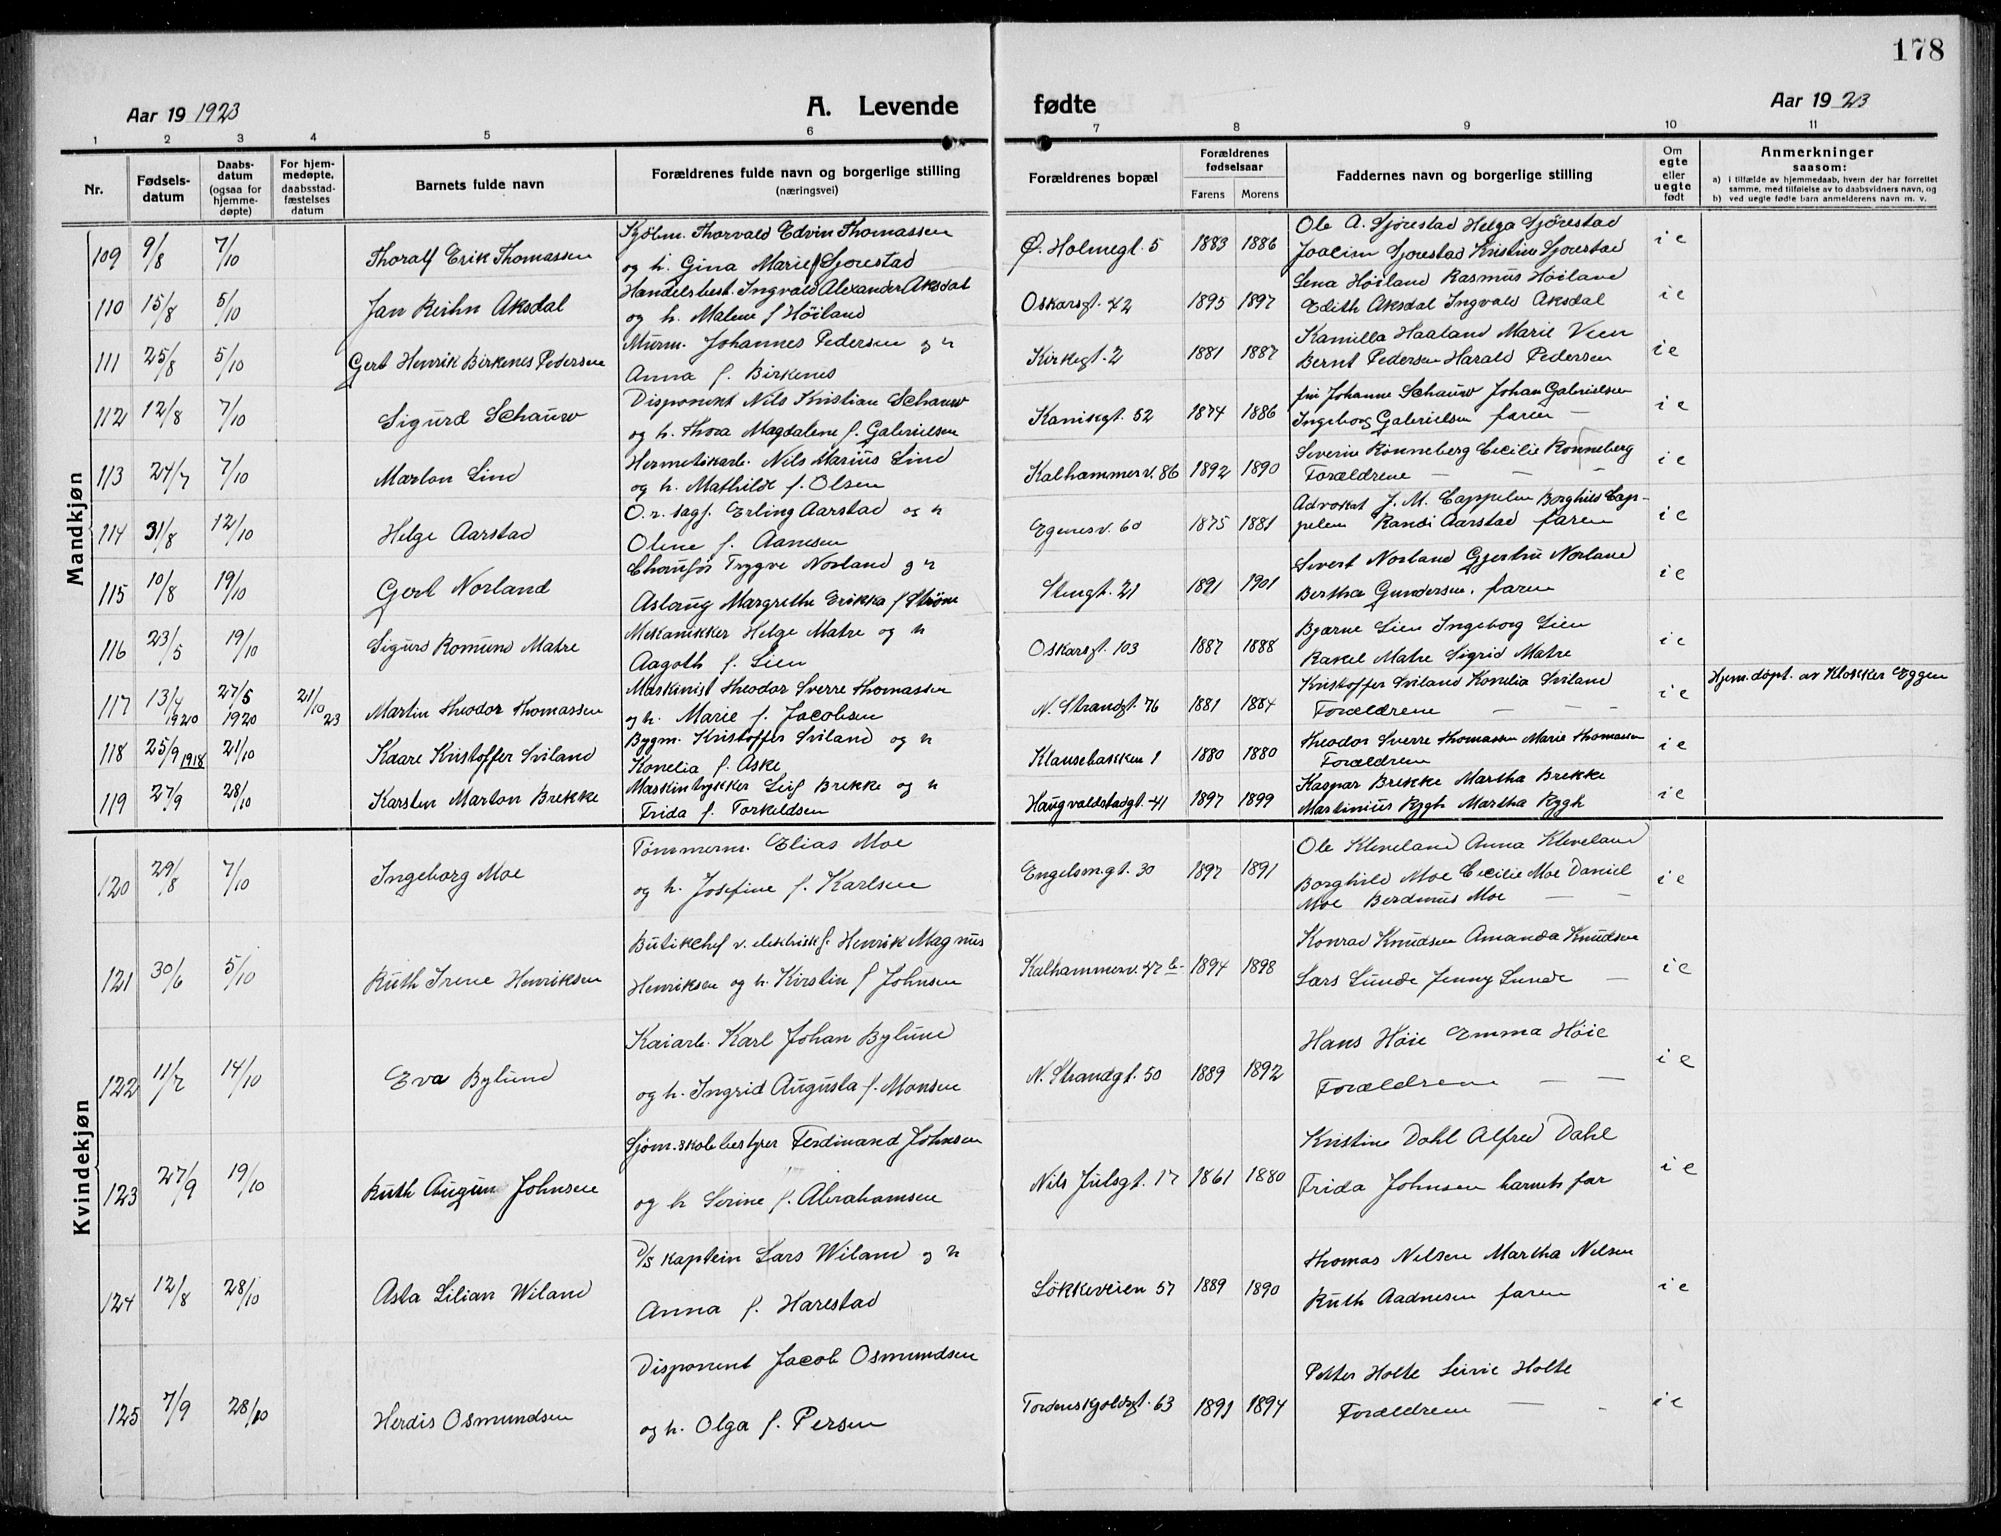 178
Aar 19 1923
A. Levende
fødte
Aar 19 23
1 2 3 4 5 6 7 8 9 10 11
Nr.
Fødsels-
datum
Daabs-
datum
(ogsaa for
hjemme-
døpte)
For hjem-
medøpte,
daabsstad-
fæstelses
datum
Barnets fulde navn
Forældrenes fulde navn og borgerlige stilling
(næringsvei)
Forældrenes bopæl
Forældrenes
fødselsaar
Farens Morens
Faddernes navn og borgerlige stilling
Om
egte
eller
uegte
født
Anmerkninger
saasom:
a) i tilfælde av hjemmedaab, hvem der har forrettet
samme, med tilføielse av to daabsvidners navn, og
b) ved uegte fødte barn anmelderens navn m. v.
Mandkjøn
109 9/8 7/10 Thoralf Erik Thomassen
Kjøbm. Thorvald Edvin Thomassen
og h. Gina Marie f Sjørestad
Ø. Holmegt. 5 1883 1886
Ole A. Sjørestad Helga Sjørestad
Joakim Sjørestad Kristine Sjørestad
i e
110 15/8 5/10 Jan Reihn Aksdal
Handelsbest. Ingvald Alexander Aksdal
og h. Malene f Høiland
Oskarsgt. 42 1895 1897
Lena Høiland Rasmus Høiland
Edith Aksdal Ingvald Aksdal
i e
111 25/8 5/10 Gert Henrik Birkenes Pedersen
Murm. Johannes Pedersen og h
Anna f. Birkenes
Kirkegt. 2 1881 1887
Kamilla Haaland Marie Veen
Bernt Pedersen Harald Pedersen
i e
112 12/8 7/10 Sigurd Schauw
Disponent Nils Kristian Schauw
og h. Thora Magdalene f. Gabrielsen
Kanikgt. 52 1874 1886
fru Johanne Schauw Johan Gabrielsen
Ingeborg Gabrielsen faren —
i e
113 24/7 7/10 Marton Lind
Hermetikarb. Nils Marius Lind
og h. Mathilde f. Olsen
Kalhammerv. 86 1892 1890
Severin Rønneberg Cecilie Rønneberg
Forældrene — — —
i e
114 31/8 12/10 Helge Aarstad
O.r. sagf. Erling Aarstad og h
Olene f. Aanesen
Egenesv. 60 1875 1881
Advokat J. M. Cappelen Borghild Cap-
pelen Randi Aarstad faren
i e
115 10/8 19/10 Gert Norland
Chaufør Trygve Norland og h
Aslaug Margrethe Erikka f Strøne
Stengt. 21 1891 1901
Sivert Norland Gjertru Norland
Bertha Gundersen. faren
i e
116 23/5 19/10 Sigurd Romund Matre
Mekanikker Helge Matre og h
Aagoth f. Lien
Oskarsgt. 103 1887 1888
Bjarne Lien Ingeborg Lien
Rakel Matre Sigrid Matre
i e
117 13/4 1920 27/5 1920 21/10 23 Martin Theodor Thomassen
Maskinist Theodor Sverre Thomassen
og h. Marie f. Jacobsen
N. Strandgt. 76 1881 1884
Kristoffer Sviland Konelia Sviland
Forældrene — — —
i e
Hjem. døpt. av Klokker Eggen
118 25/9 1918 21/10 Kaare Kristoffer Sviland
Bygm. Kristoffer Sviland og h
Konelia f. Aske
Klausebakken 1 1880 1880
Theodor Sverre Thomassen Marie Thomassen
Forældrene
i e
119 27/9 28/10 Karsten Marton Brekke
Maskintrykker Leif Brekke og h
Frida f. Torkildsen
Haugvaldstadgt. 41 1897 1899
Kaspar Brekke Martha Brekke
Martinius Rygh Martha Rygh
i e
Kvindekjøn
120 29/8 7/10 Ingeborg Moe
Tømmerm. Elias Moe
og h. Josefine f. Karlsen
Engelsm.gt. 30 1897 1891
Ole Kleveland Anna Kleveland
Borghild Moe Cecilie Moe Daniel
Moe Berdinus Moe — —
i e
121 30/6 5/10 Ruth Irene Henriksen
Butikchef v. elektrisk f. Henrik Magnus
Henriksen og h. Kirstin f Johnsen
Kalhammerv. 42 b- 1894 1898
Konrad Knudsen Amanda Knudsen
Lars Lunde Jenny Lunde —
i e
122 11/7 14/10 Eva Bylund
Kaiarb. Karl Johan Bylund
og h. Ingrid Augusta f. Monsen
N. Strandgt. 50 1889 1892
Hans Høie Emma Høie
Forældrene — —
i e
123 27/9 19/10 Ruth Johnsen
Sjøm.skolebestyrer Ferdinand Johnsen
og h Serine f. Abrahamsen
Nils Julsgt. 17 1861 1880
Kristine Dahl Alfred Dahl
Frida Johnsen barnets far
i e
124 12/8 28/10 Asta Lilian Wiland
D/S kaptein Lars Wiland og h
Anna f. Harestad
Løkkeveien 57 1889 1890
Thomas Nilsen Martha Nilsen
Ruth Aadnesen faren
i e
125 7/9 28/10 Herdis Osmundsen
Disponent Jacob Osmundsen
og h. Olga f. Persen
Tordenskjoldsgt. 63 1891 1894
Petter Holte Holte
Forældrene — -
i e